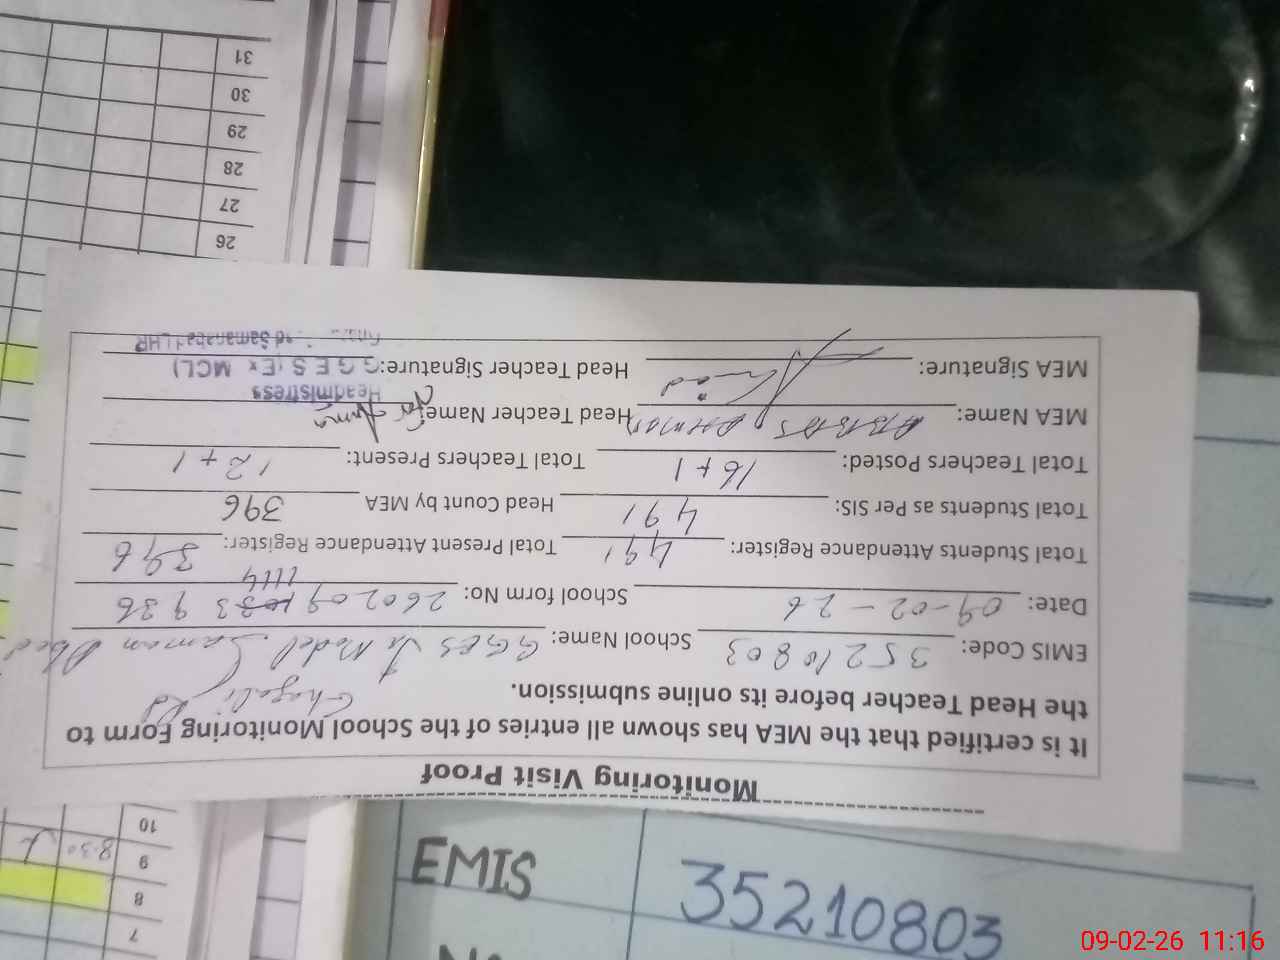 Monitoring Visit Proof
It is certified that the MEA has shown all entries of the School Monitoring Form to
the Head Teacher before its online submission.
EMIS Code: 35210803 School Name: GGES Jr Model Saman Abad
Ghazali Rd
Date: 09-02-26 School form No: 260209 1033 3936
1114
Total Students Attendance Register: 491 Total Present Attendant Register: 396
Total Students as Per SIS: 491 Head Count by MEA 396
Total Teachers Posted: 16+1 Total Teachers Present: 12+1
MEA Name: ABBAS Head Teacher Name:
MEA Signature: Head Teacher Signature:
Headmistress
G G E S (Ex MCL)
Samanabad LHR
31
30
29
28
27
26
10
9 8:30
8
7
EMIS 35210803
09-02-26 11:16